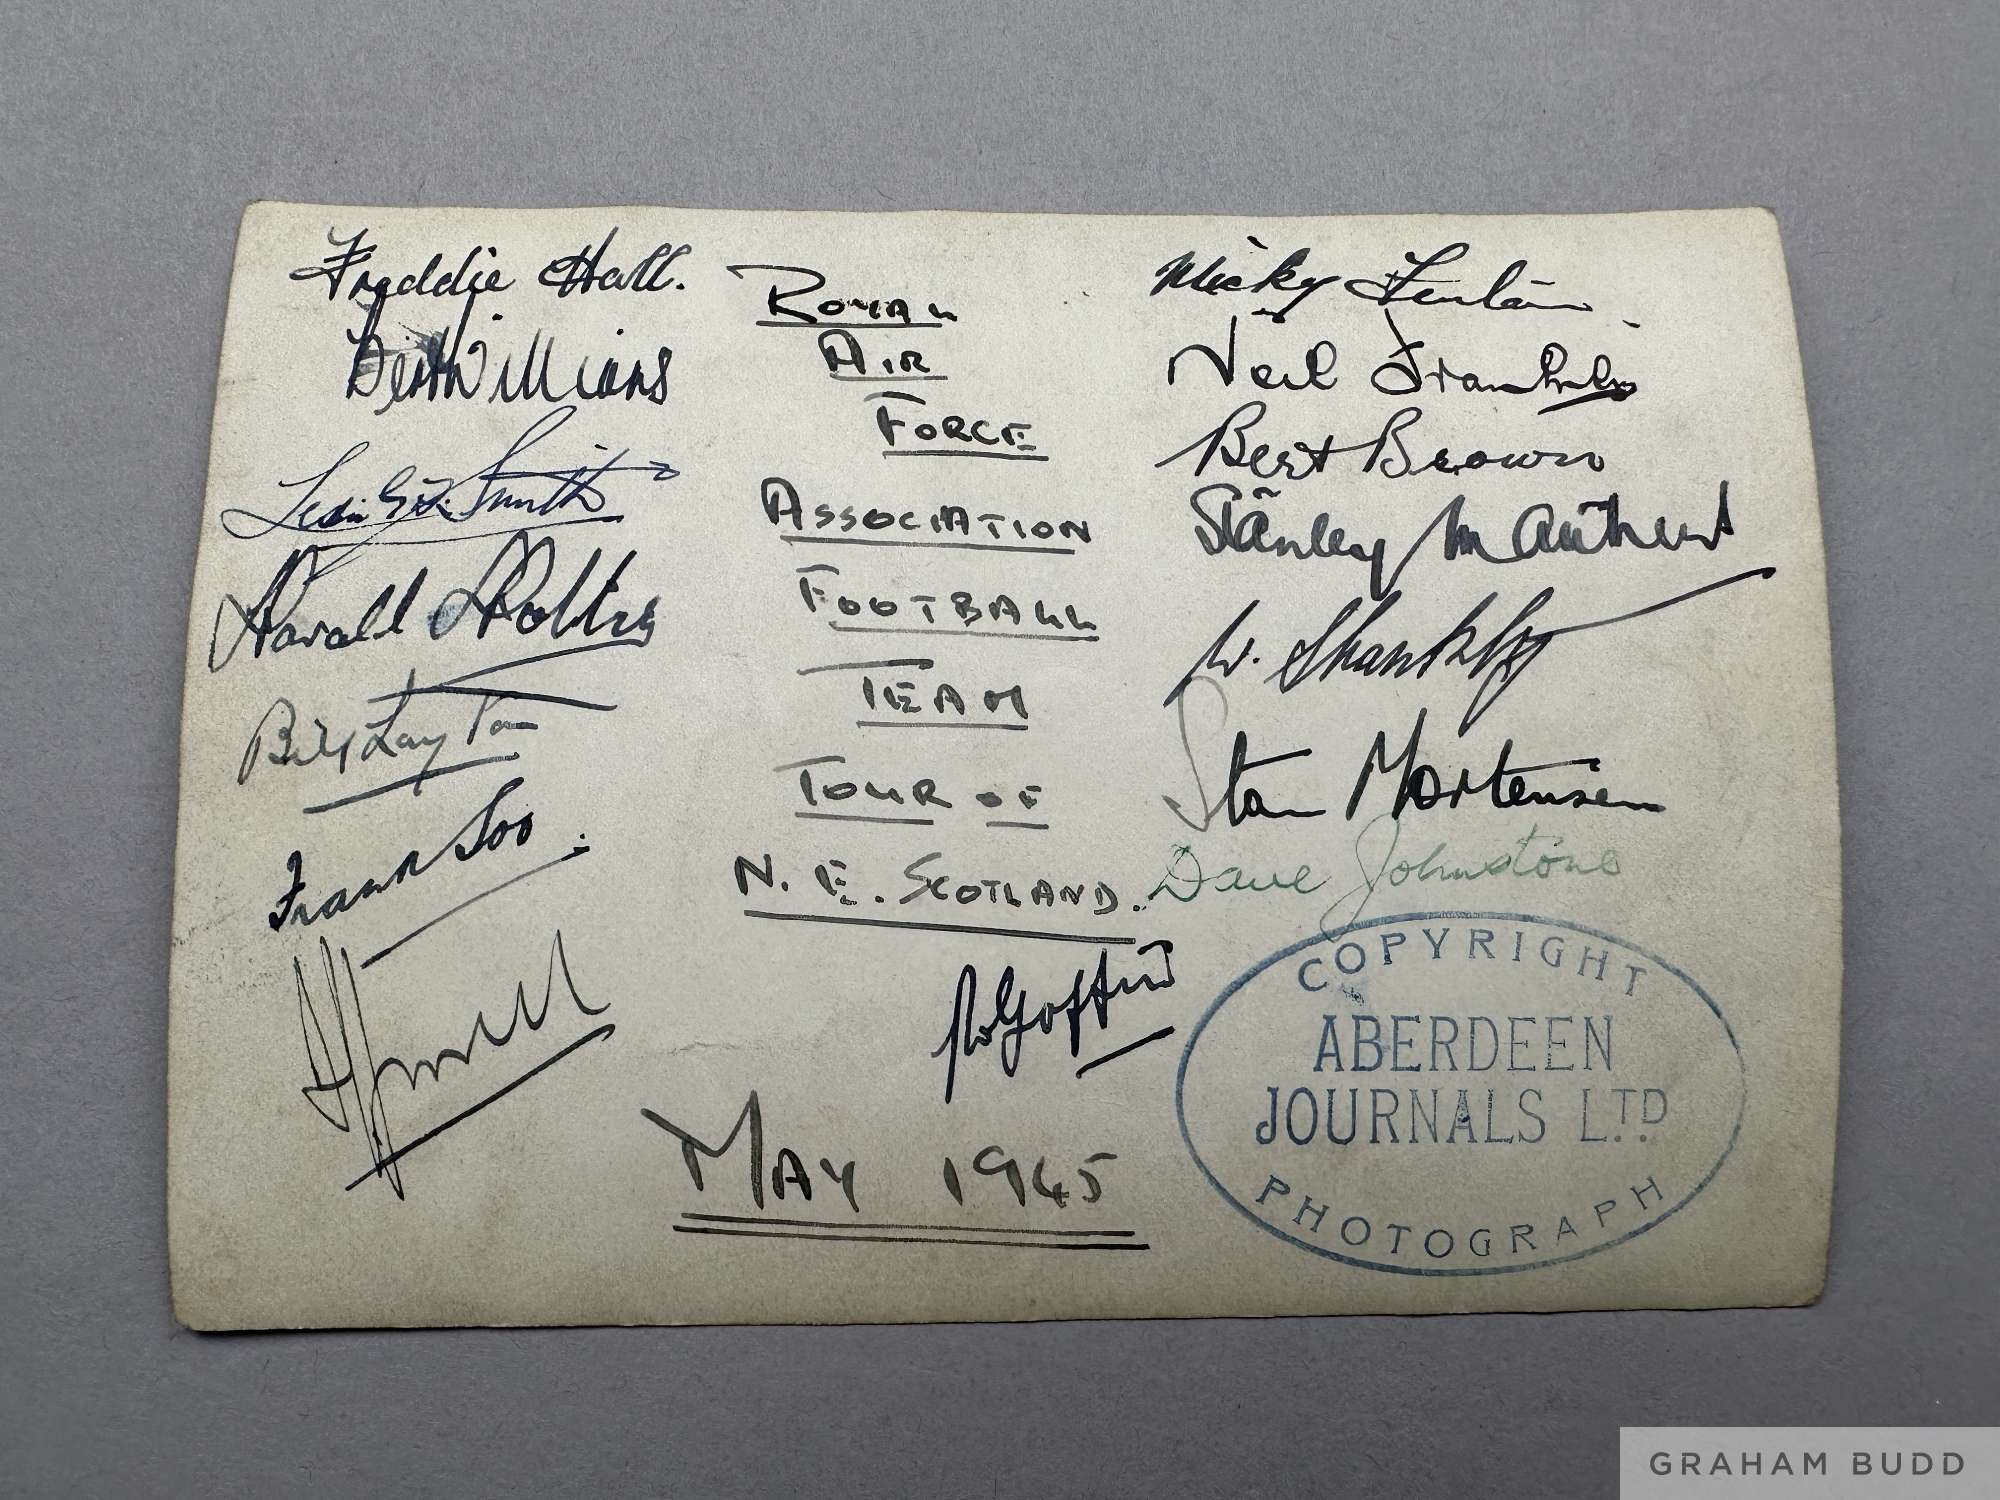 Freddie Hall.
Bert Williams
Leslie G.F. Smith
Harold
Bill Layton
Frank Soo
ROYAL
AIR
FORCE
ASSOCIATION
FOOTBALL
TEAM
TOUR OF
N. E. SCOTLAND.
MAY 1945
Micky Fenton
Neil Franklin
Bert Brown
Stanley Matthews
W. Shankly
Stan Mortensen
Dave Johnstone
COPYRIGHT
ABERDEEN
JOURNALS LTD
PHOTOGRAPH
GRAHAM BUDD